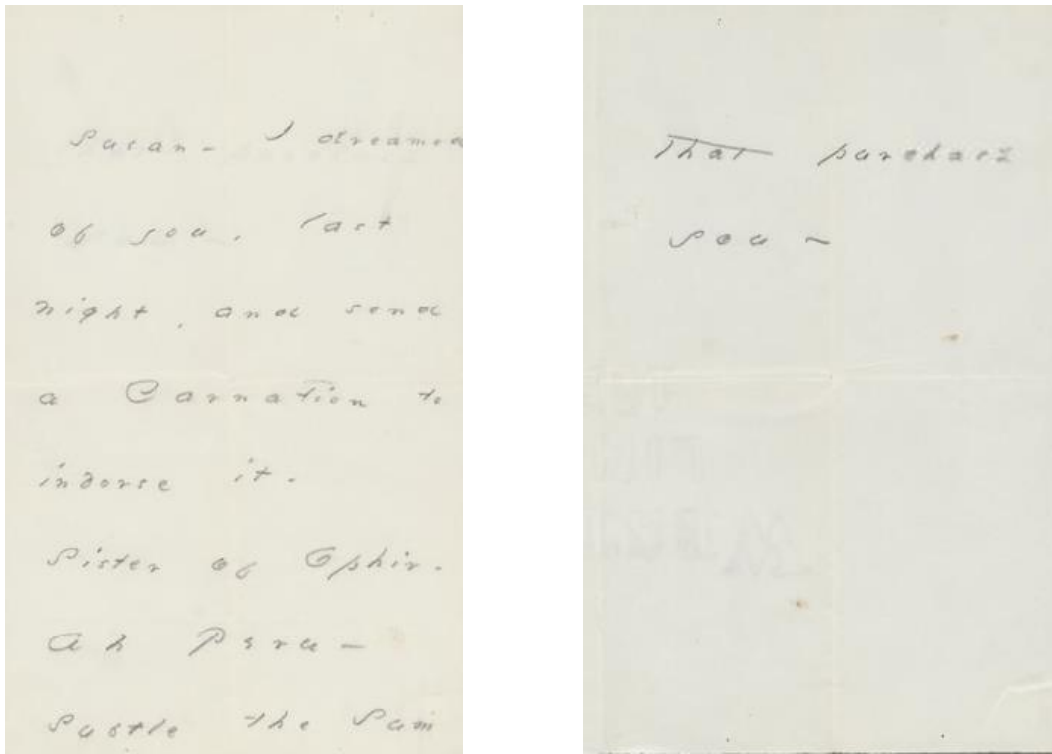 Susan - I dreamed
of you, last
night, and send
a Carnation to
indorse it.
Sister of Ophir -
Ah Peru -
Subtle the Sum
That purchase
you -